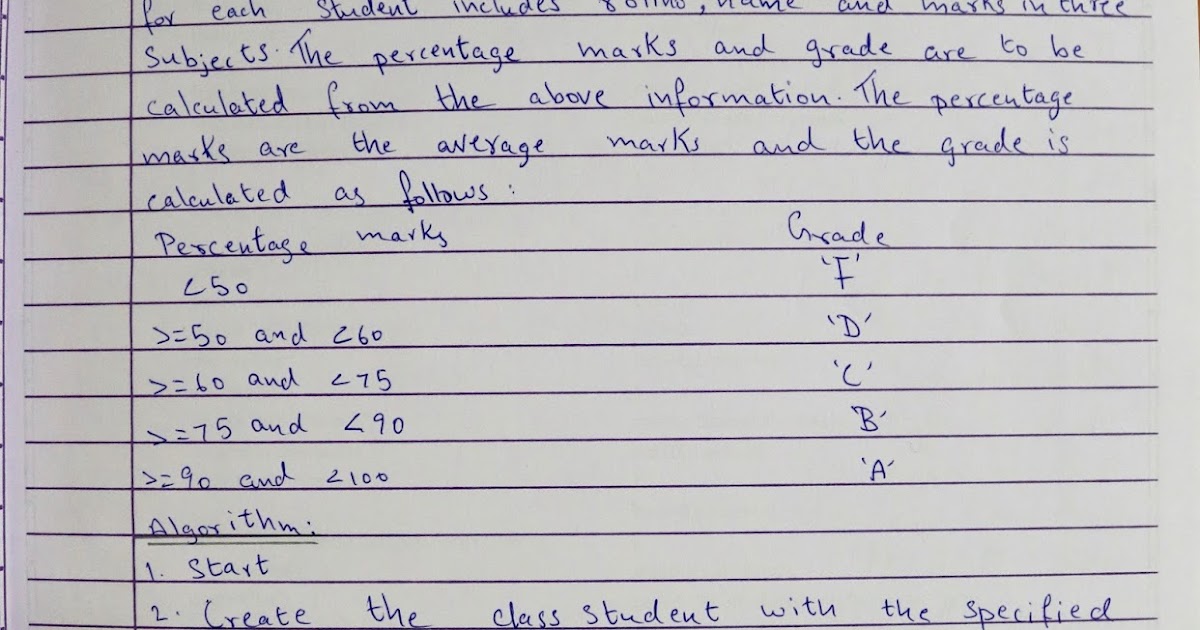 for each student includes rollno, name and marks in three
subjects. The percentage marks and grade are to be
calculated from the above information. The percentage
marks are the average marks and the grade is
calculated as follows:
Percentage marks Grade
<50 'F'
>=50 and <60 'D'
>=60 and <75 'C'
>=75 and <90 'B'
>=90 and <100 'A'
Algorithm:
1. Start
2. Create the class student with the specified